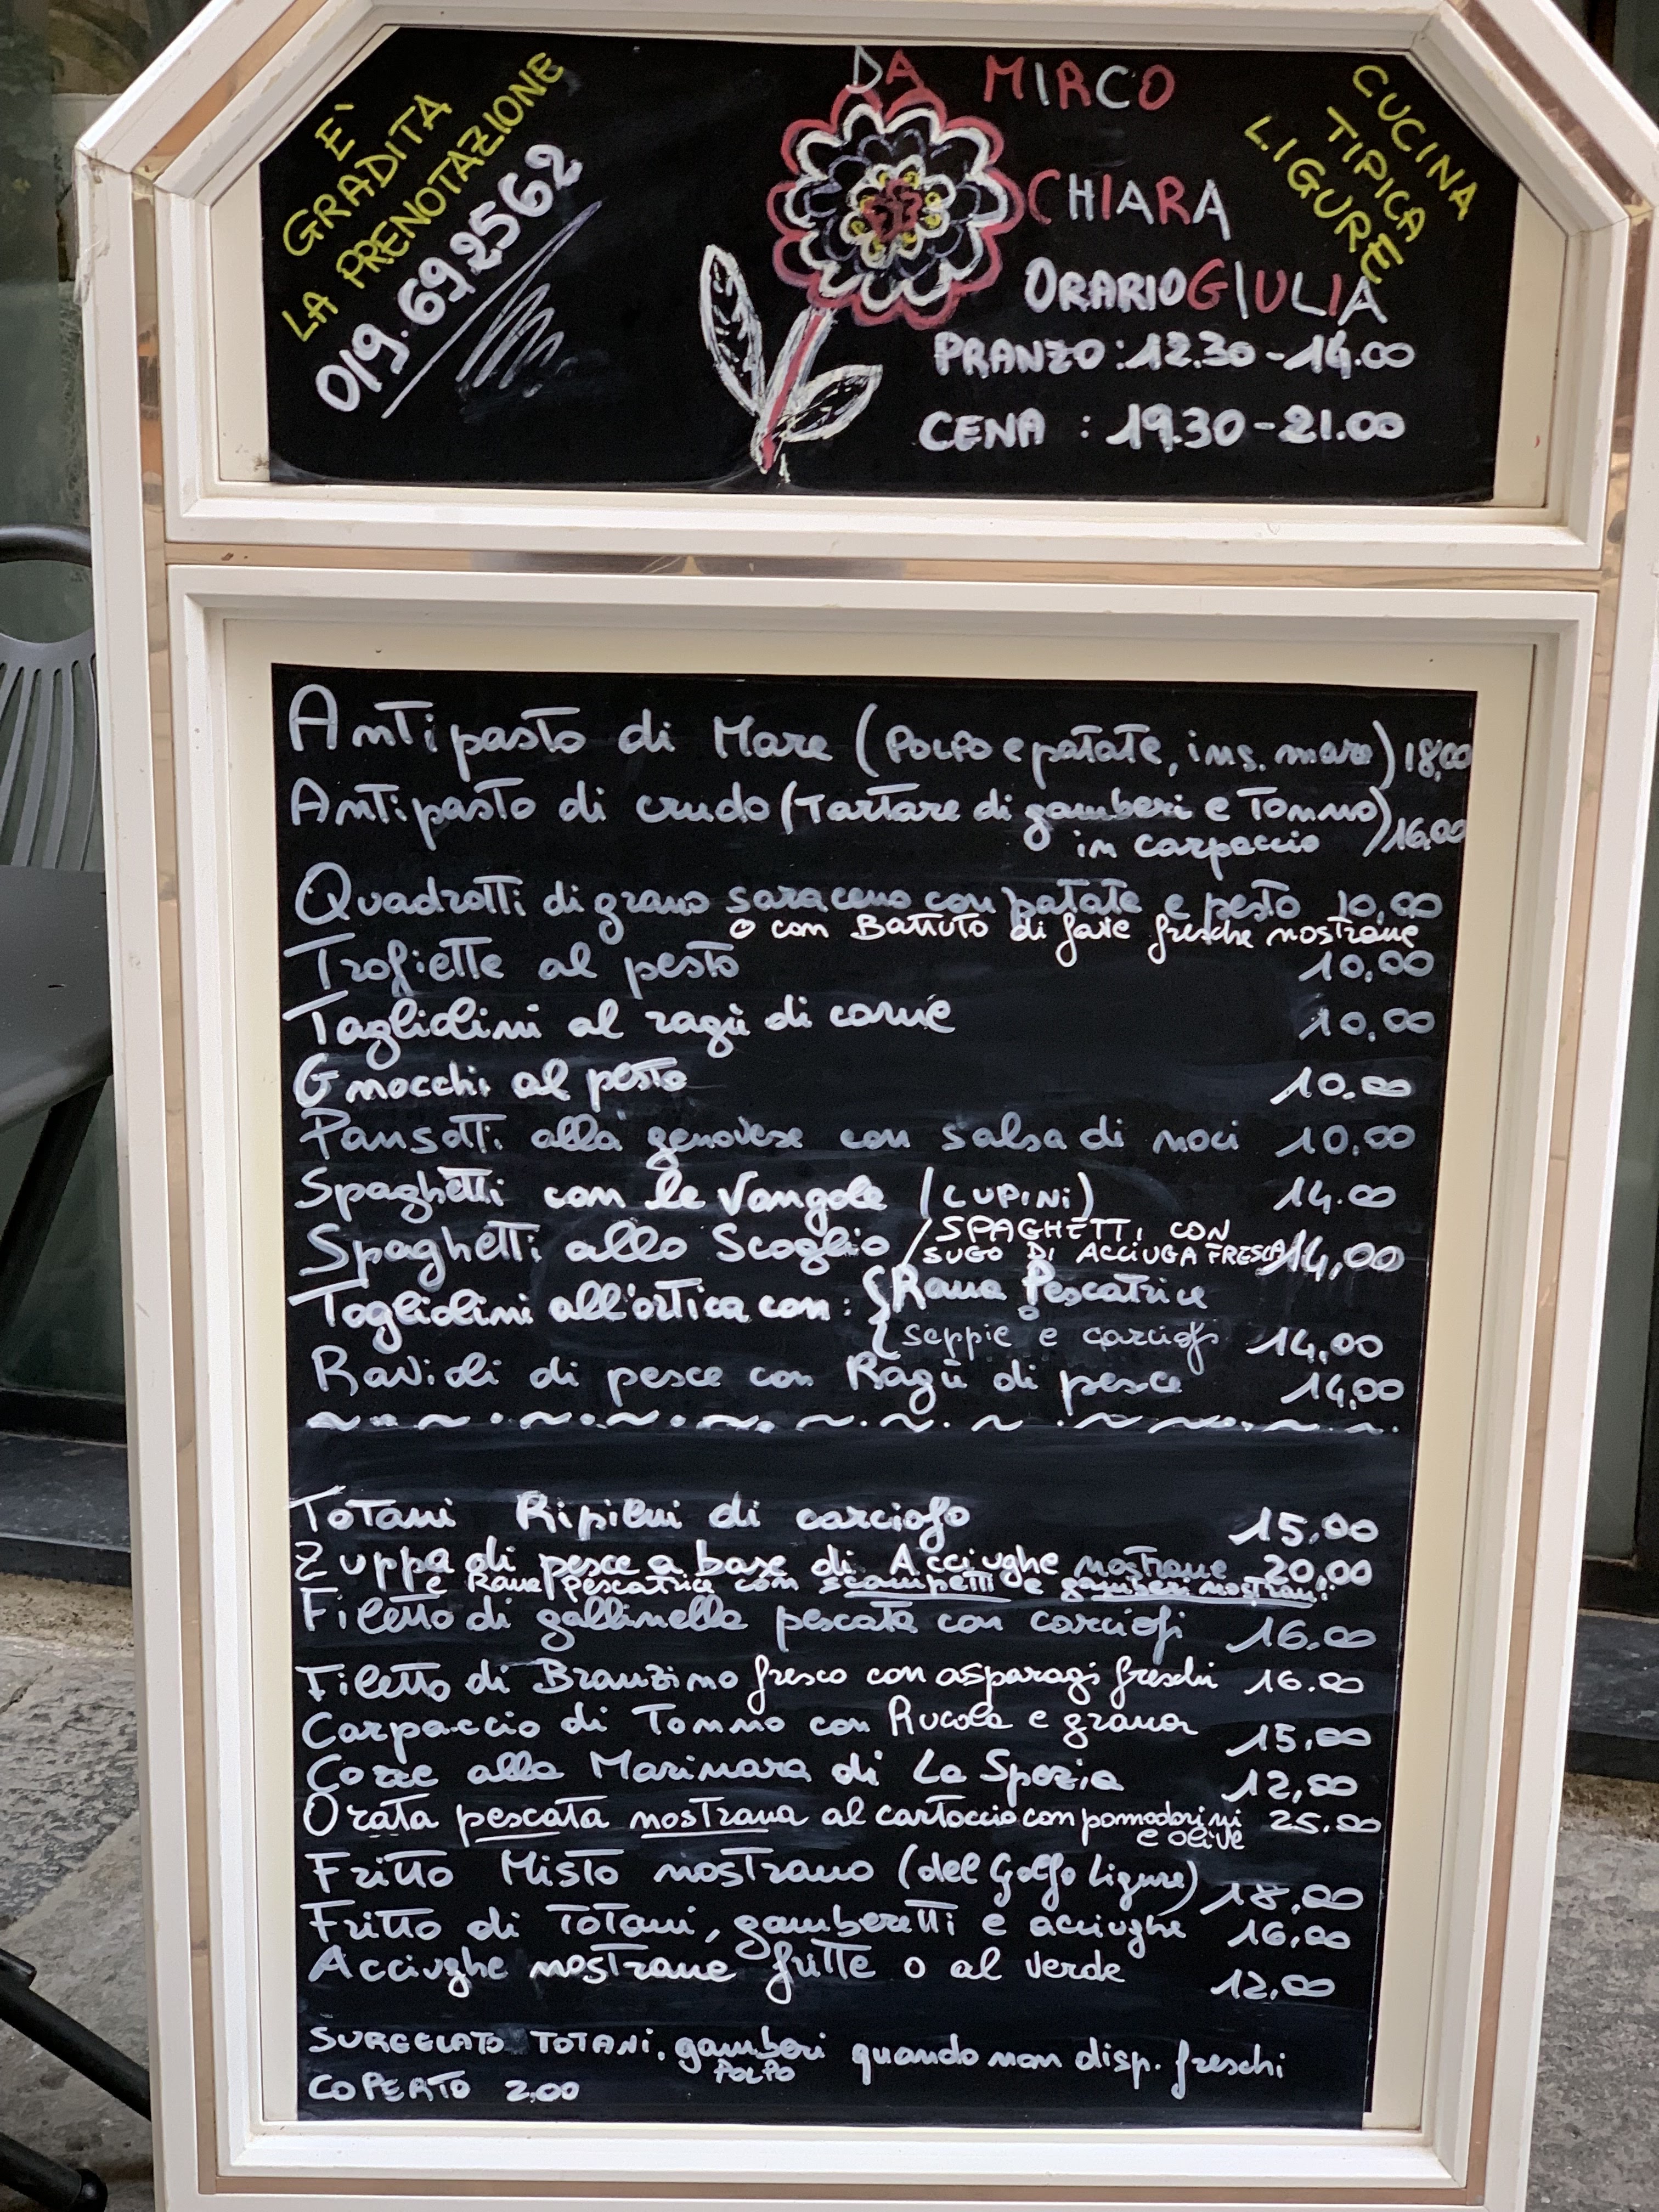 È
GRADITA
LA PRENOTAZIONE
019.692562
DA MIRCO
CHIARA
GIULIA
CUCINA
TIPICA
LIGURE
ORARIO
PRANZO: 12.30-14.00
CENA : 19.30-21.00
Antipasto di Mare (Polpo e patate, ins. mare) 18,00
Antipasto di crudo (Tartare di gamberi e Tonno) 16,00
in carpaccio
Quadrotti di grano saraceno con patate e pesto 10,00
o con Battuto di fave fresche nostrane
Trofiette al pesto 10,00
Tagliolini al ragù di carne 10,00
Gnocchi al pesto 10.00
Pansotti alla genovese con salsa di noci 10,00
Spaghetti con le Vongole (LUPINI) 14.00
Spaghetti allo Scoglio / SPAGHETTI CON
SUGO DI ACCIUGA FRESCA 14,00
Tagliolini all'ortica con: { Rana Pescatrice
o
seppie e carciofi 14,00
Ravioli di pesce con Ragù di pesce 14,00
Totani Ripieni di carciofo 15,00
Zuppa di pesce a base di Acciughe nostrane 20,00
e Rana Pescatrice con scampetti e gamberi nostrani
Filetto di gallinella pescata con carciofi 16.00
Filetto di Branzino fresco con asparagi freschi 16.00
Carpaccio di Tonno con Rucola e grana 15,00
Cozze alla Marinara di La Spezia 12,00
Orata pescata nostrana al cartoccio con pomodorini 25.00
e olive
Fritto Misto nostrano (del Golfo Ligure) 18,00
Fritto di Totani, gamberetti e acciughe 16,00
Acciughe nostrane fritte o al verde 12,00
SURGELATO TOTANI, gamberi quando non disp. freschi
POLPO
COPERTO 2,00